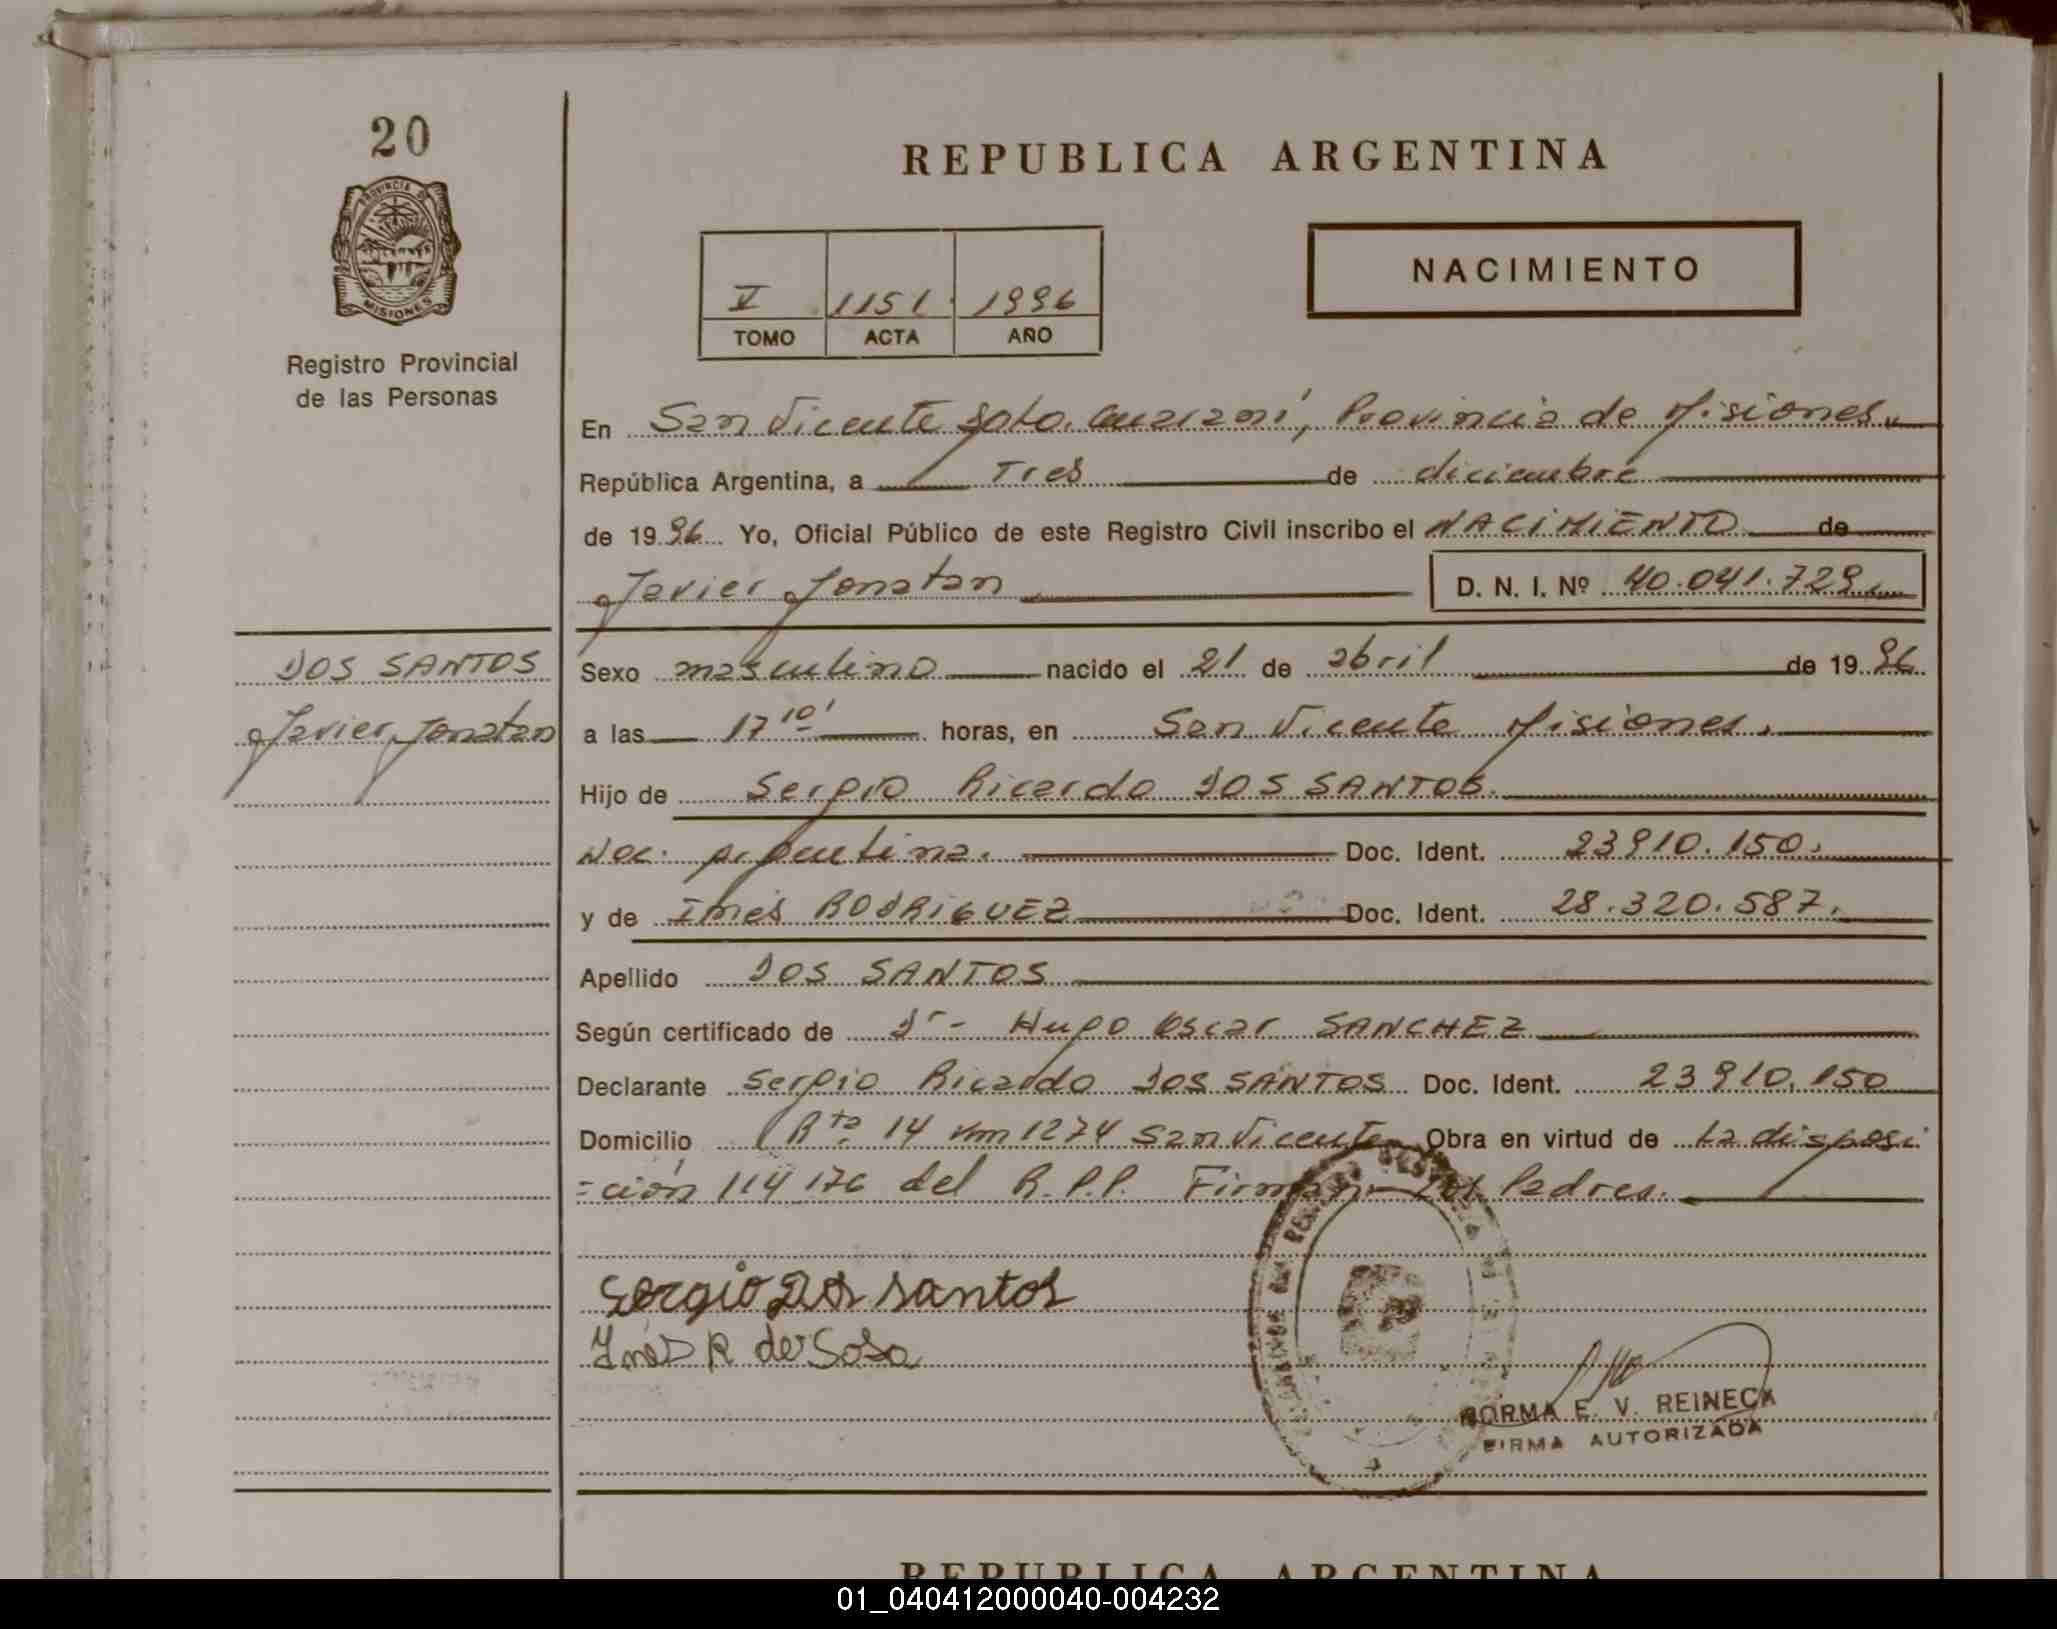 20
REPUBLICA ARGENTINA
PROVINCIA DE
MISIONES
Registro Provincial
de las Personas
NACIMIENTO
V 1151 1996
TOMO ACTA AÑO
En San Vicente Dpto. Guaraní, Provincia de Misiones
República Argentina, a Tres de diciembre
de 1996 Yo, Oficial Público de este Registro Civil inscribo el NACIMIENTO de
Javier Jonatan D. N. I. Nº 40.041.729
DOS SANTOS
Javier Jonatan
Sexo masculino nacido el 21 de abril de 1996
a las 17 10' horas, en San Vicente Misiones.
Hijo de Sergio Ricardo DOS SANTOS.
Nac. argentina. Doc. Ident. 23910.150.
y de Inés RODRIGUEZ Doc. Ident. 28.320.587.
Apellido DOS SANTOS
Según certificado de Dr- Hugo Oscar SANCHEZ
Declarante Sergio Ricardo DOS SANTOS Doc. Ident. 23910.150
Domicilio Rta 14 Km 1274 San Vicente Obra en virtud de La disposi
=ción 114/76 del R.P.P. Firman los Padres.
Sergio Dos santos
Ines R de Sosa
NORMA E. V. REINECK
FIRMA AUTORIZADA
REPUBLICA ARGENTINA
01_040412000040-004232